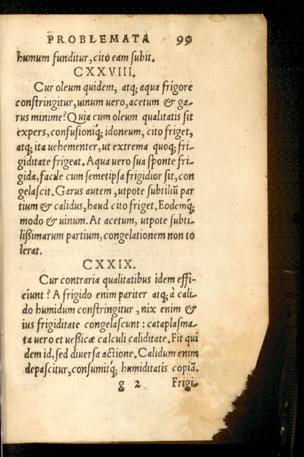 PROBLEMATA 99
humum funditur, cito eam subit.
CXXVIII.
Cur oleum quidem, atq; aqua frigore
constringitur, uinum uero, acetum & ga-
rus minime? Quia cum oleum qualitatis sit
expers, confusioniq; idoneum, cito friget,
atq; ita uehementer, ut extrema quoq; fri-
giditate frigeat. Aqua uero sua sponte fri-
gida, facile cum semetipsa frigidior sit, con
gelascit. Garus autem, utpote subtiliũ par
tium & calidus, haud cito friget. Eodemq;
modo & uinum. At acetum, utpote subti-
lissimarum partium, congelationem non to
lerat.
CXXIX.
Cur contraria qualitatibus idem effi-
ciunt? A frigido enim pariter atq; à cali-
do humidum constringitur, nix enim &
ius frigiditate congelascunt: cataplasma-
ta uero et uesicæ calculi caliditate. Fit qui
dem id, sed diuersa actione. Calidum enim
depascitur, consumitq; humiditatis copiã.
g 2 Frigi-